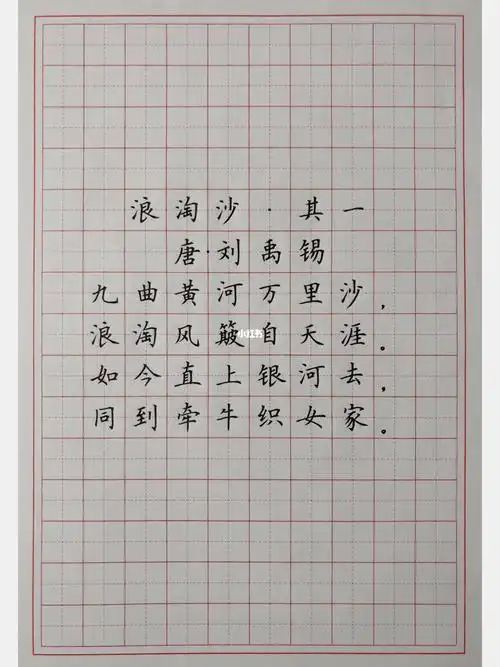 浪淘沙·其一
唐·刘禹锡
九曲黄河万里沙，
浪淘风簸自天涯。
如今直上银河去，
同到牵牛织女家。
小红书